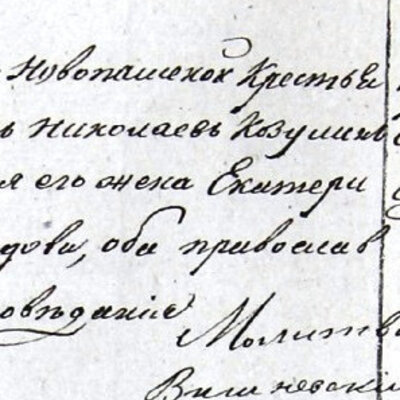 Новопашеной Крестья
ъ Николаевъ Козулинъ
я его жена Екатери
дова, оба православ
овѣданія
Молитв